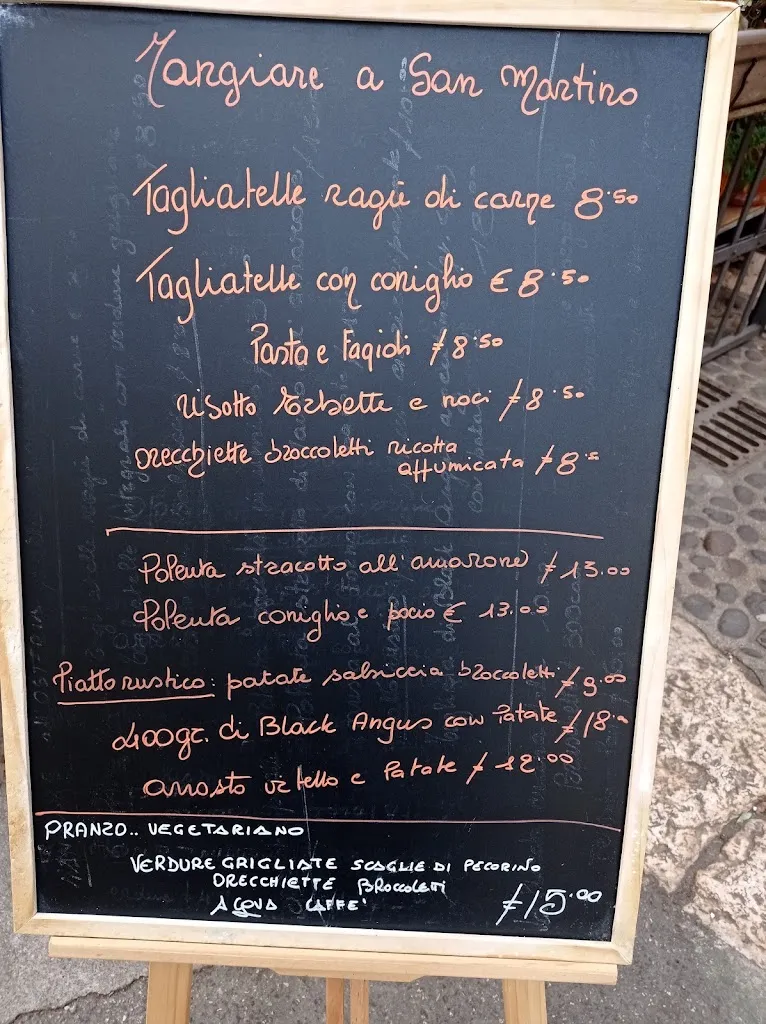 Mangiare a San Martino
Tagliatelle ragù di carne 8.50
Tagliatelle con coniglio € 8.50
Pasta e Fagioli € 8.50
Risotto erbette e noci € 8.50
Orecchiette broccoletti ricotta
affumicata € 8.5
Polenta stracotto all'amarone € 13.00
Polenta coniglio e pocio € 13.00
Piatto rustico: patate salsiccia broccoletti € 9.00
400gr. di Black Angus con Patate € 18.
arrosto vitello e Patate € 12.00
PRANZO.. VEGETARIANO
VERDURE GRIGLIATE SCAGLIE DI PECORINO
ORECCHIETTE BROCCOLETTI
ACQUA CAFFE'
€ 15.00